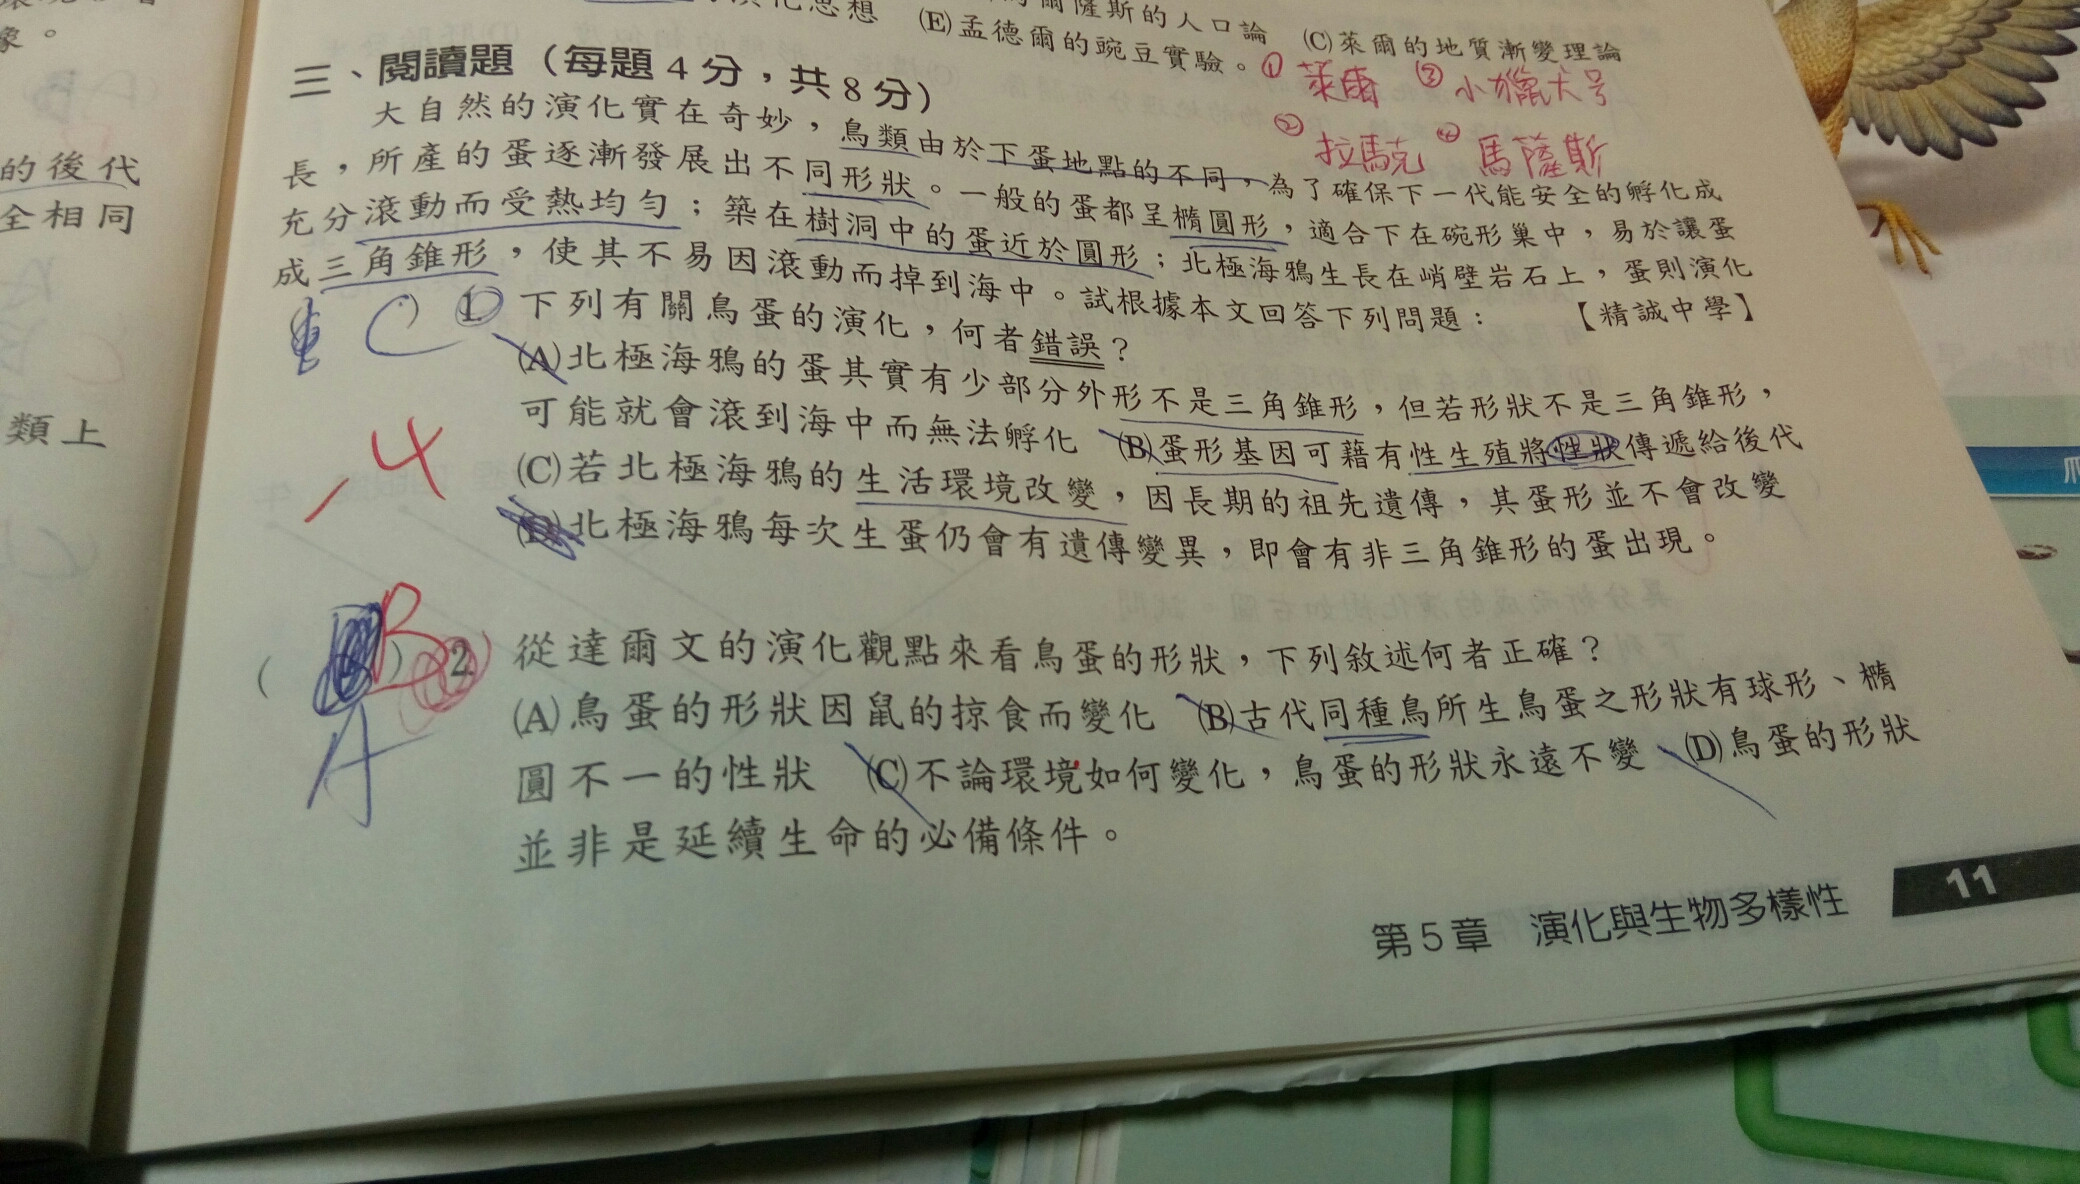 象。
的後代
全相同
類上
演化思想
爾薩斯的人口論
(E)孟德爾的豌豆實驗。
(C)萊爾的地質漸變理論
① 萊爾 ③ 小獵犬号
② 拉馬克 ④ 馬薩斯
三、閱讀題(每題4分,共8分)
大自然的演化實在奇妙,鳥類由於下蛋地點的不同,為了確保下一代能安全的孵化成
長,所產的蛋逐漸發展出不同形狀。一般的蛋都呈橢圓形,適合下在碗形巢中,易於讓蛋
充分滾動而受熱均勻;築在樹洞中的蛋近於圓形;北極海鴉生長在峭壁岩石上,蛋則演化
成三角錐形,使其不易因滾動而掉到海中。試根據本文回答下列問題:【精誠中學】
C 1 下列有關鳥蛋的演化,何者錯誤?
(A)北極海鴉的蛋其實有少部分外形不是三角錐形,但若形狀不是三角錐形,
可能就會滾到海中而無法孵化 (B)蛋形基因可藉有性生殖將性狀傳遞給後代
(C)若北極海鴉的生活環境改變,因長期的祖先遺傳,其蛋形並不會改變
(D)北極海鴉每次生蛋仍會有遺傳變異,即會有非三角錐形的蛋出現。
-4
( B ) 2 從達爾文的演化觀點來看鳥蛋的形狀,下列敘述何者正確?
A
(A)鳥蛋的形狀因鼠的掠食而變化 (B)古代同種鳥所生鳥蛋之形狀有球形、橢
圓不一的性狀 (C)不論環境如何變化,鳥蛋的形狀永遠不變 (D)鳥蛋的形狀
並非是延續生命的必備條件。
第5章 演化與生物多樣性 11